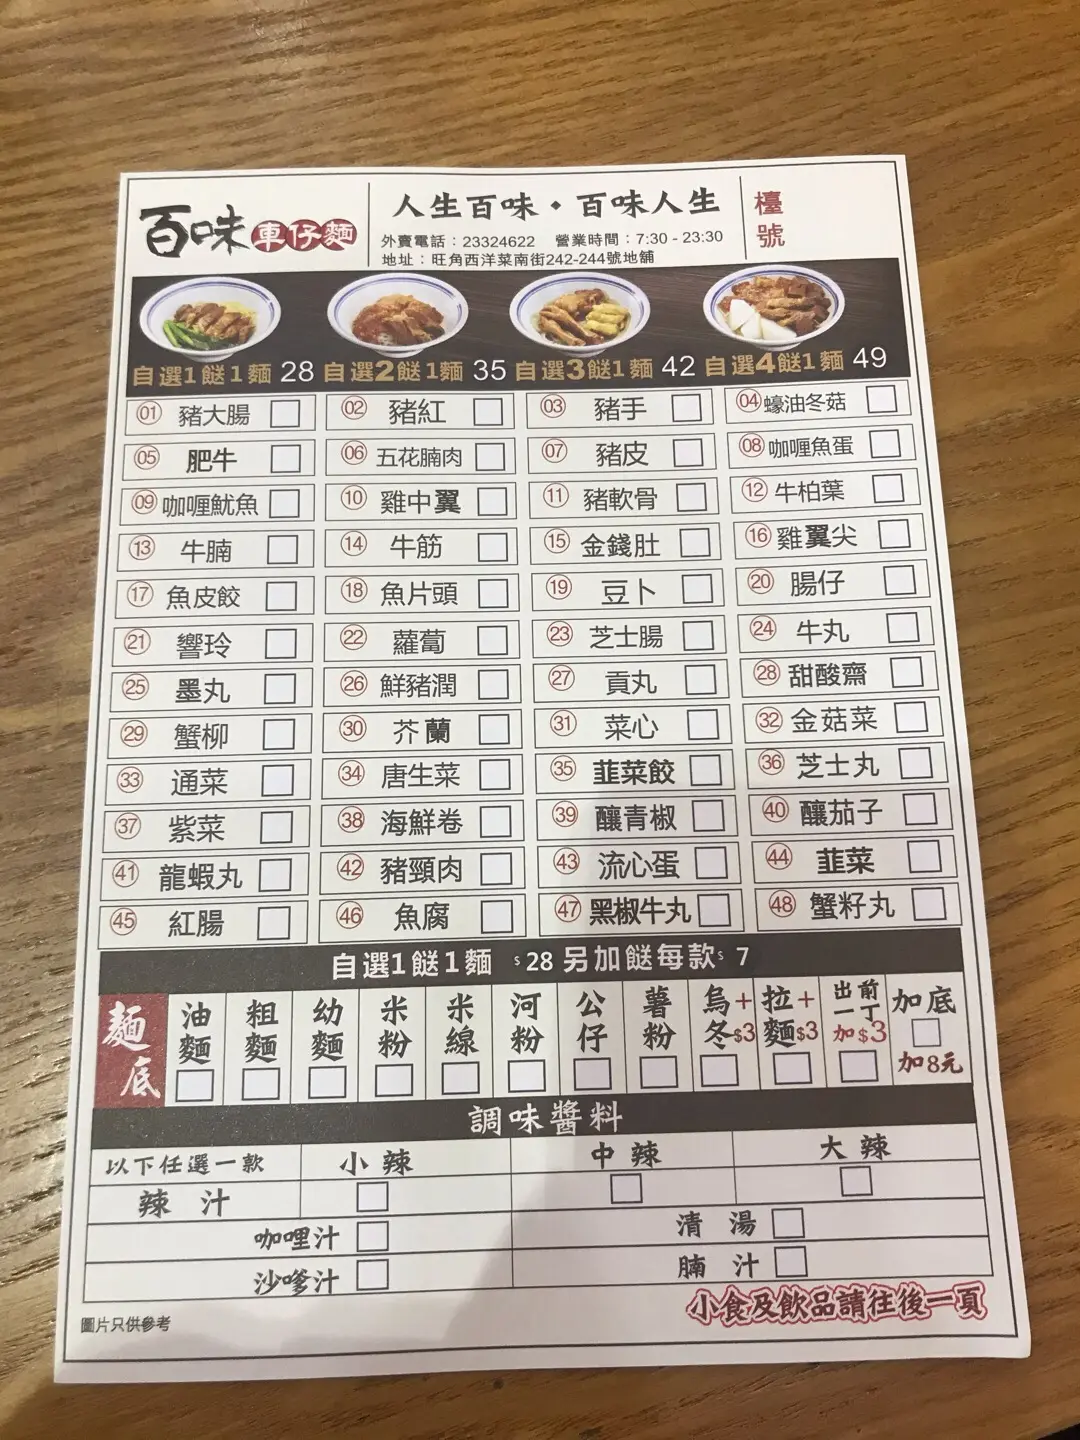 百味車仔麵
人生百味・百味人生
外賣電話：23324622 營業時間：7:30 - 23:30
地址：旺角西洋菜南街242-244號地舖
檯號
自選1餸1麵 28 自選2餸1麵 35 自選3餸1麵 42 自選4餸1麵 49
01 豬大腸 02 豬紅 03 豬手 04 蠔油冬菇
05 肥牛 06 五花腩肉 07 豬皮 08 咖喱魚蛋
09 咖喱魷魚 10 雞中翼 11 豬軟骨 12 牛柏葉
13 牛腩 14 牛筋 15 金錢肚 16 雞翼尖
17 魚皮餃 18 魚片頭 19 豆卜 20 腸仔
21 響玲 22 蘿蔔 23 芝士腸 24 牛丸
25 墨丸 26 鮮豬潤 27 貢丸 28 甜酸齋
29 蟹柳 30 芥蘭 31 菜心 32 金菇菜
33 通菜 34 唐生菜 35 韮菜餃 36 芝士丸
37 紫菜 38 海鮮卷 39 釀青椒 40 釀茄子
41 龍蝦丸 42 豬頸肉 43 流心蛋 44 韮菜
45 紅腸 46 魚腐 47 黑椒牛丸 48 蟹籽丸
自選1餸1麵 $28 另加餸每款$ 7
麵底 油麵 粗麵 幼麵 米粉 米線 河粉 公仔 薯粉 烏冬+$3 拉麵+$3 出前一丁加$3 加底 加8元
調味醬料
以下任選一款 小辣 中辣 大辣
辣汁
咖哩汁 清湯
沙嗲汁 腩汁
小食及飲品請往後一頁
圖片只供參考